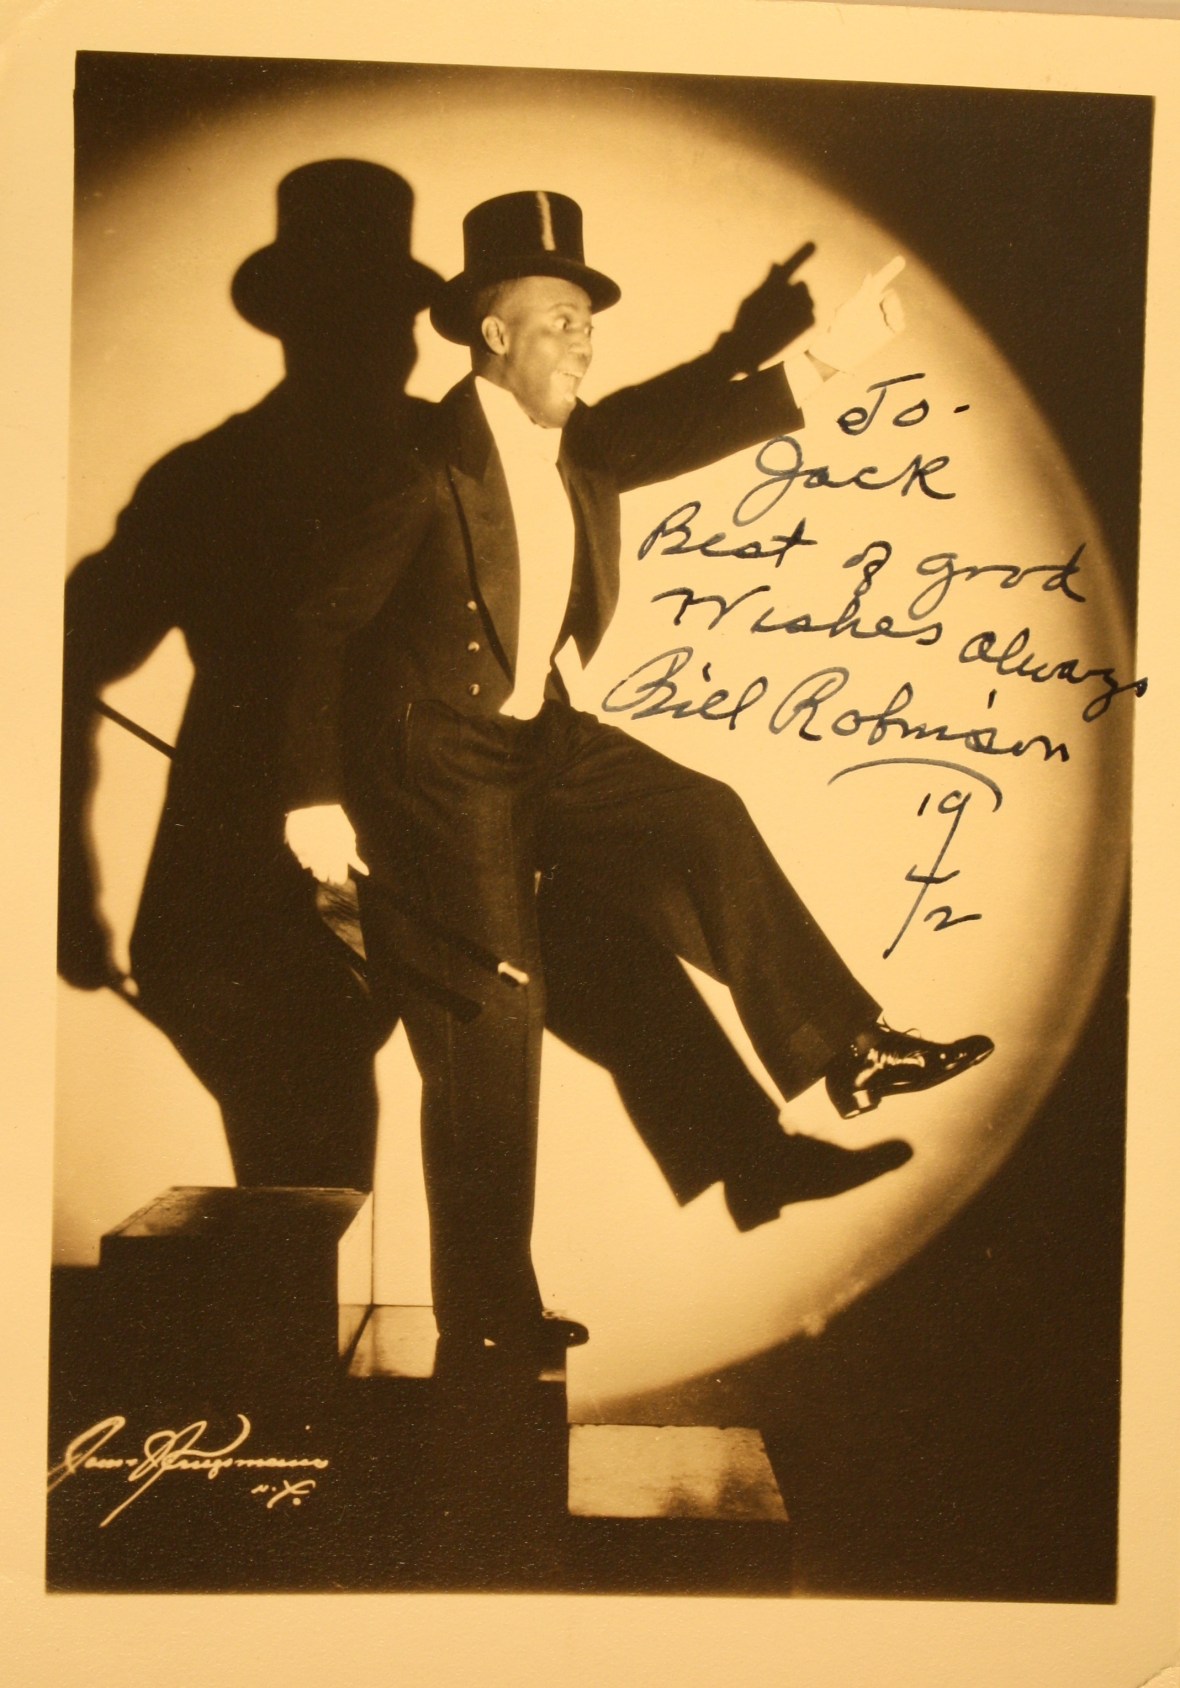 To.
Jack
Best of good
Wishes always
Bill Robinson
19
42
N.Y.